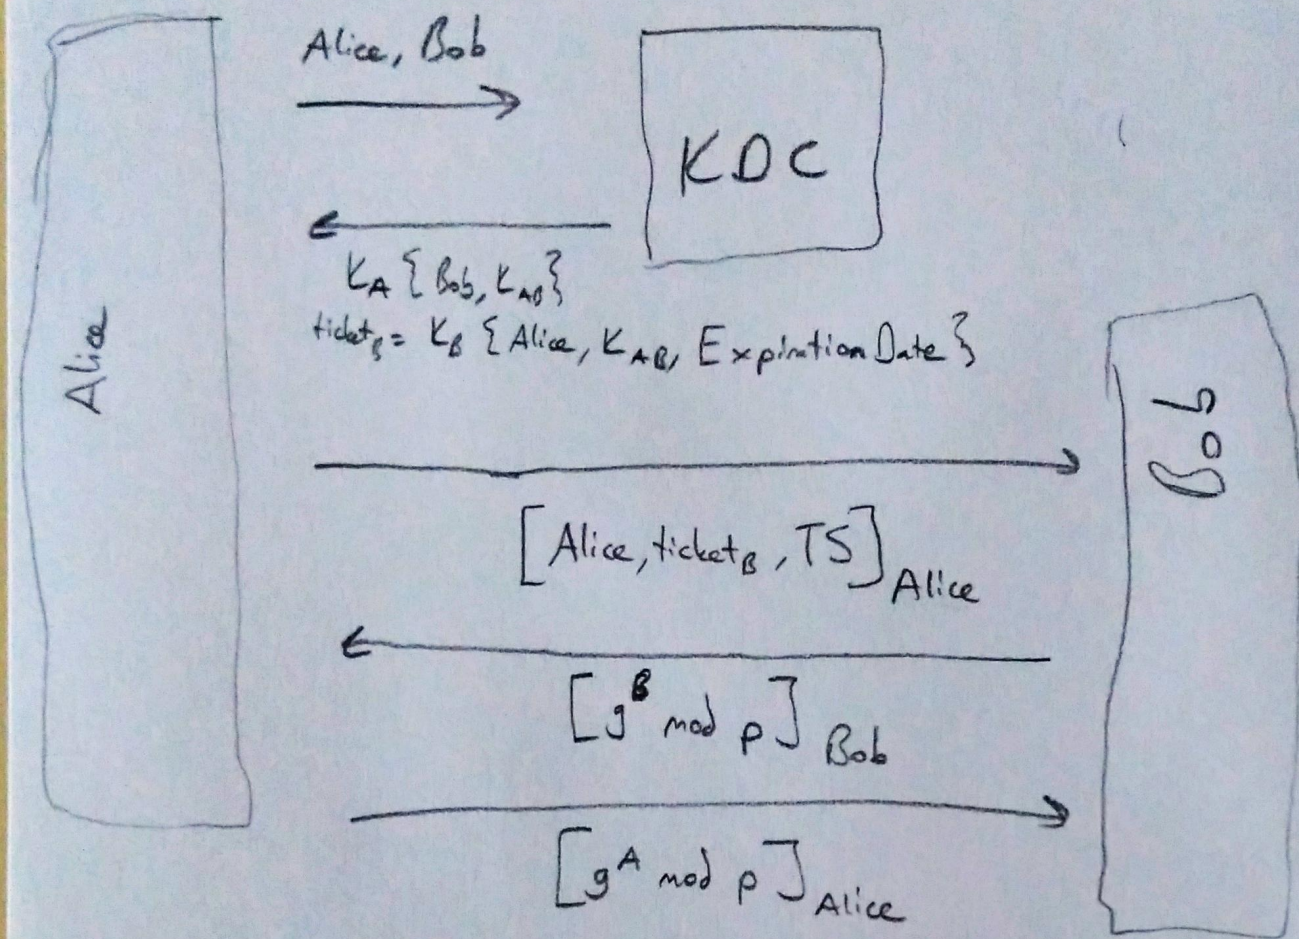 Alice, Bob
KDC
K_A { Bob, K_AB }
ticket_B = K_B { Alice, K_AB, Expiration Date }
Alice
Bob
[ Alice, ticket_B , TS ]_Alice
[ g^B mod p ]_Bob
[ g^A mod p ]_Alice